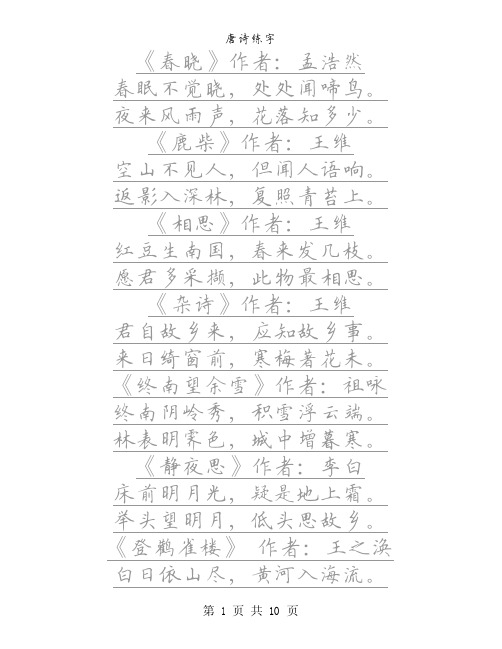 唐诗练字
《春晓》作者：孟浩然
春眠不觉晓，处处闻啼鸟。
夜来风雨声，花落知多少。
《鹿柴》作者：王维
空山不见人，但闻人语响。
返影入深林，复照青苔上。
《相思》作者：王维
红豆生南国，春来发几枝。
愿君多采撷，此物最相思。
《杂诗》作者：王维
君自故乡来，应知故乡事。
来日绮窗前，寒梅著花未。
《终南望余雪》作者：祖咏
终南阴岭秀，积雪浮云端。
林表明霁色，城中增暮寒。
《静夜思》作者：李白
床前明月光，疑是地上霜。
举头望明月，低头思故乡。
《登鹳雀楼》 作者：王之涣
白日依山尽，黄河入海流。
第 1 页 共 10 页